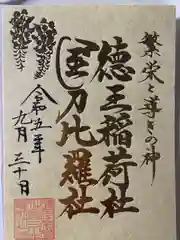 繁栄と導きの神
徳王稲荷社
金刀比羅社
令和五年
九月三十日